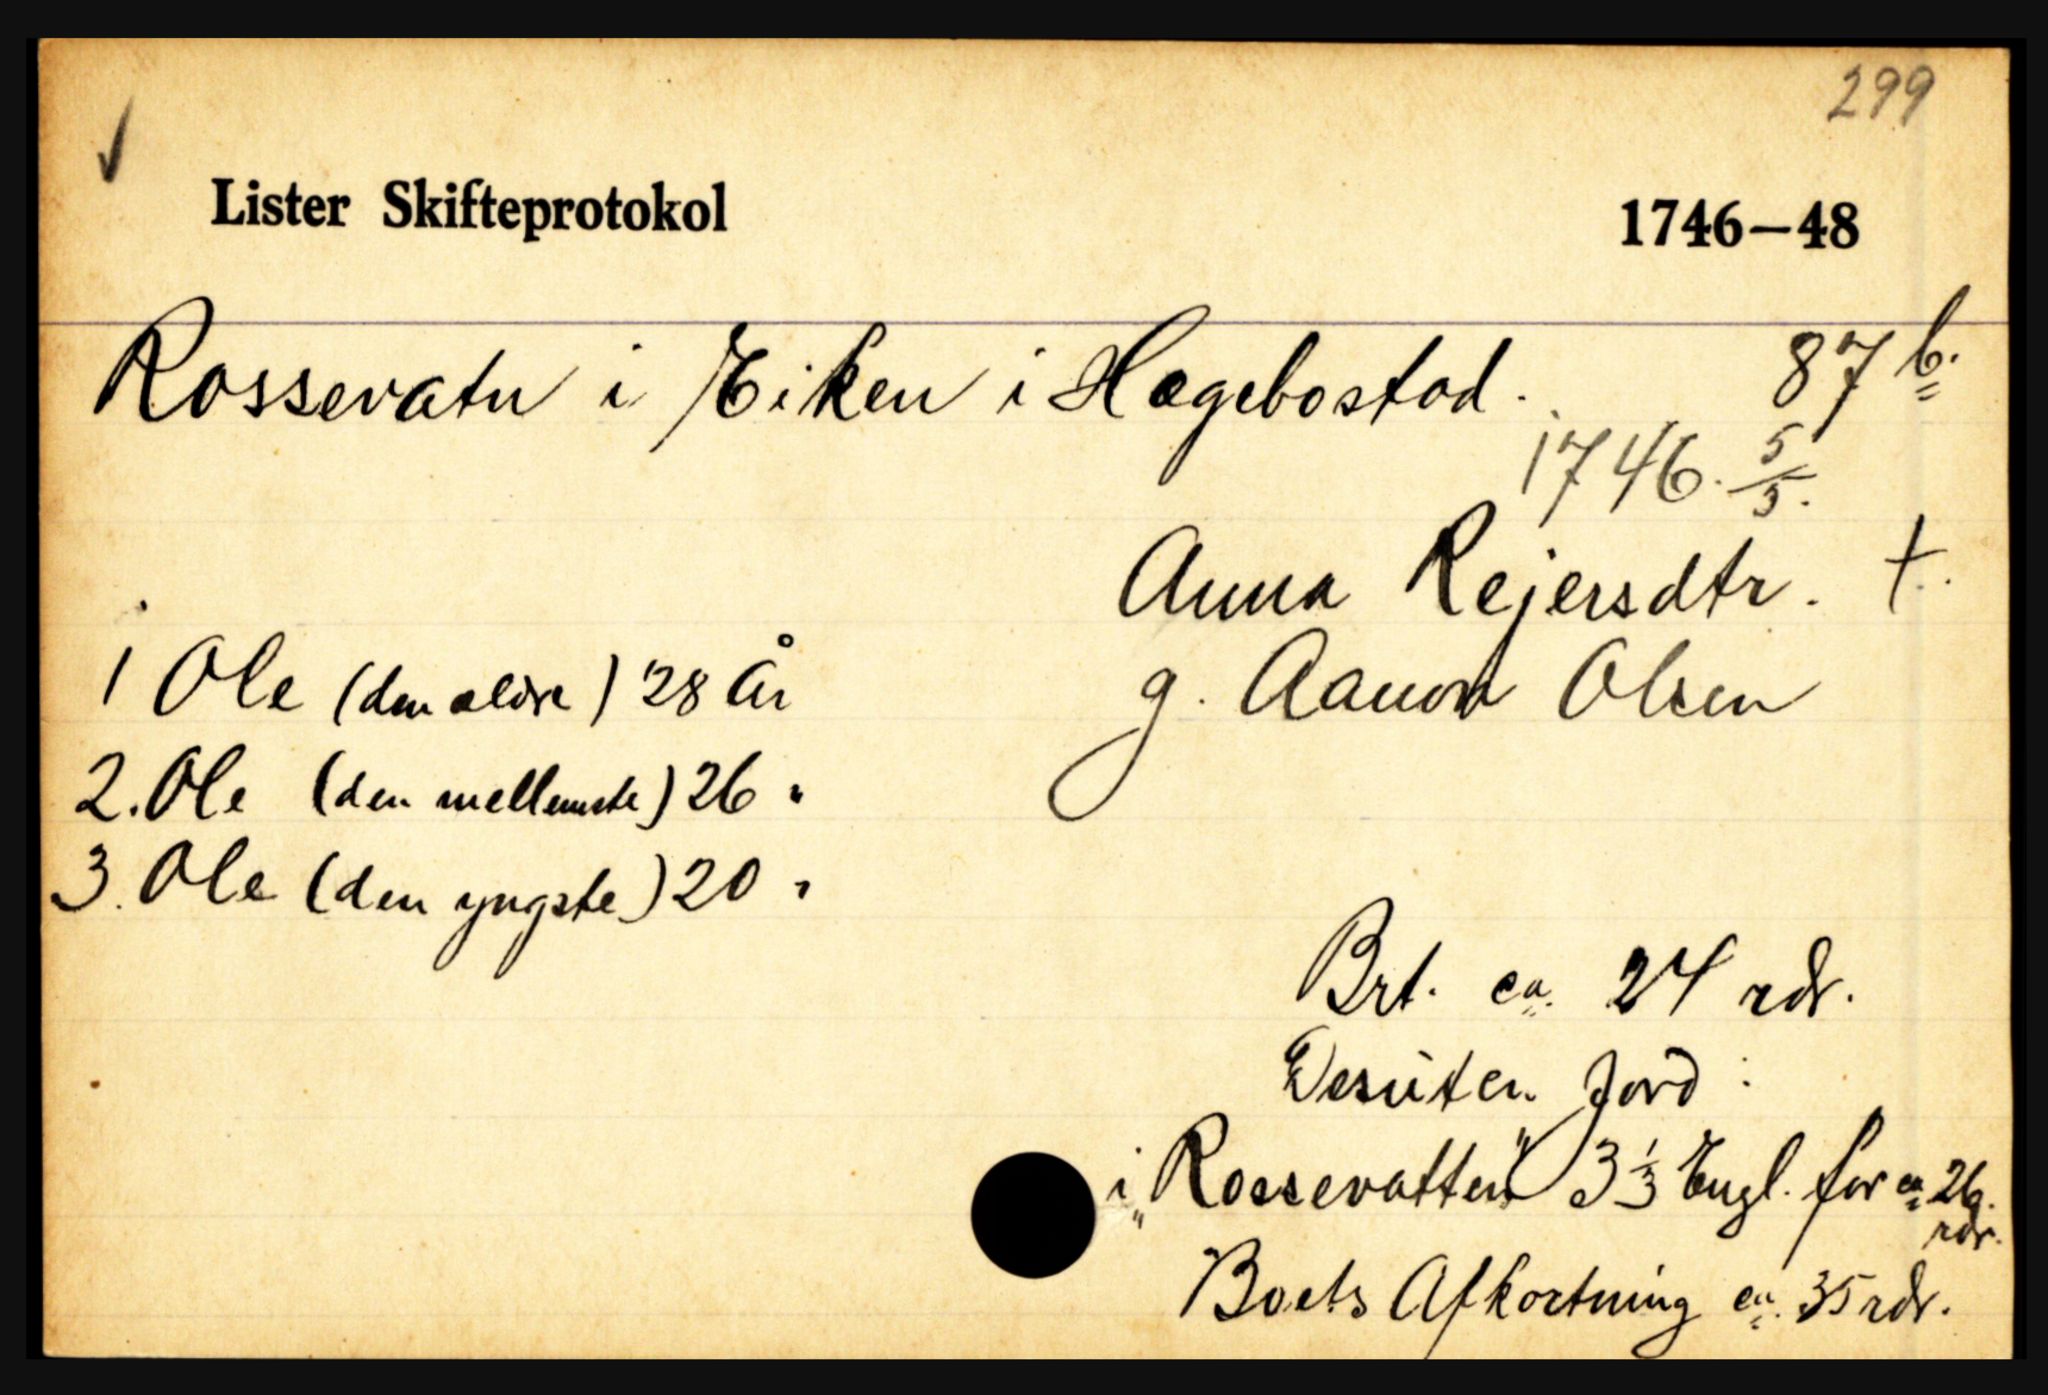 299
✓
Lister Skifteprotokol 1746—48
Rossevatn i Eiken i Hægebostad. 87 b.
1746. 5/3.
Anna Rejersdtr. †.
1 Ole (den ældre) 28 år g. Aanon Olsen
2. Ole (den mellemste) 26 "
3. Ole (den yngste) 20 "
Brt. ca. 24 rdr.
Desuten Jord:
i „Rossevatten" 3 1/3 Engl. for ca 26.
rdr.
Boets Afkortning ca. 35 rdr.